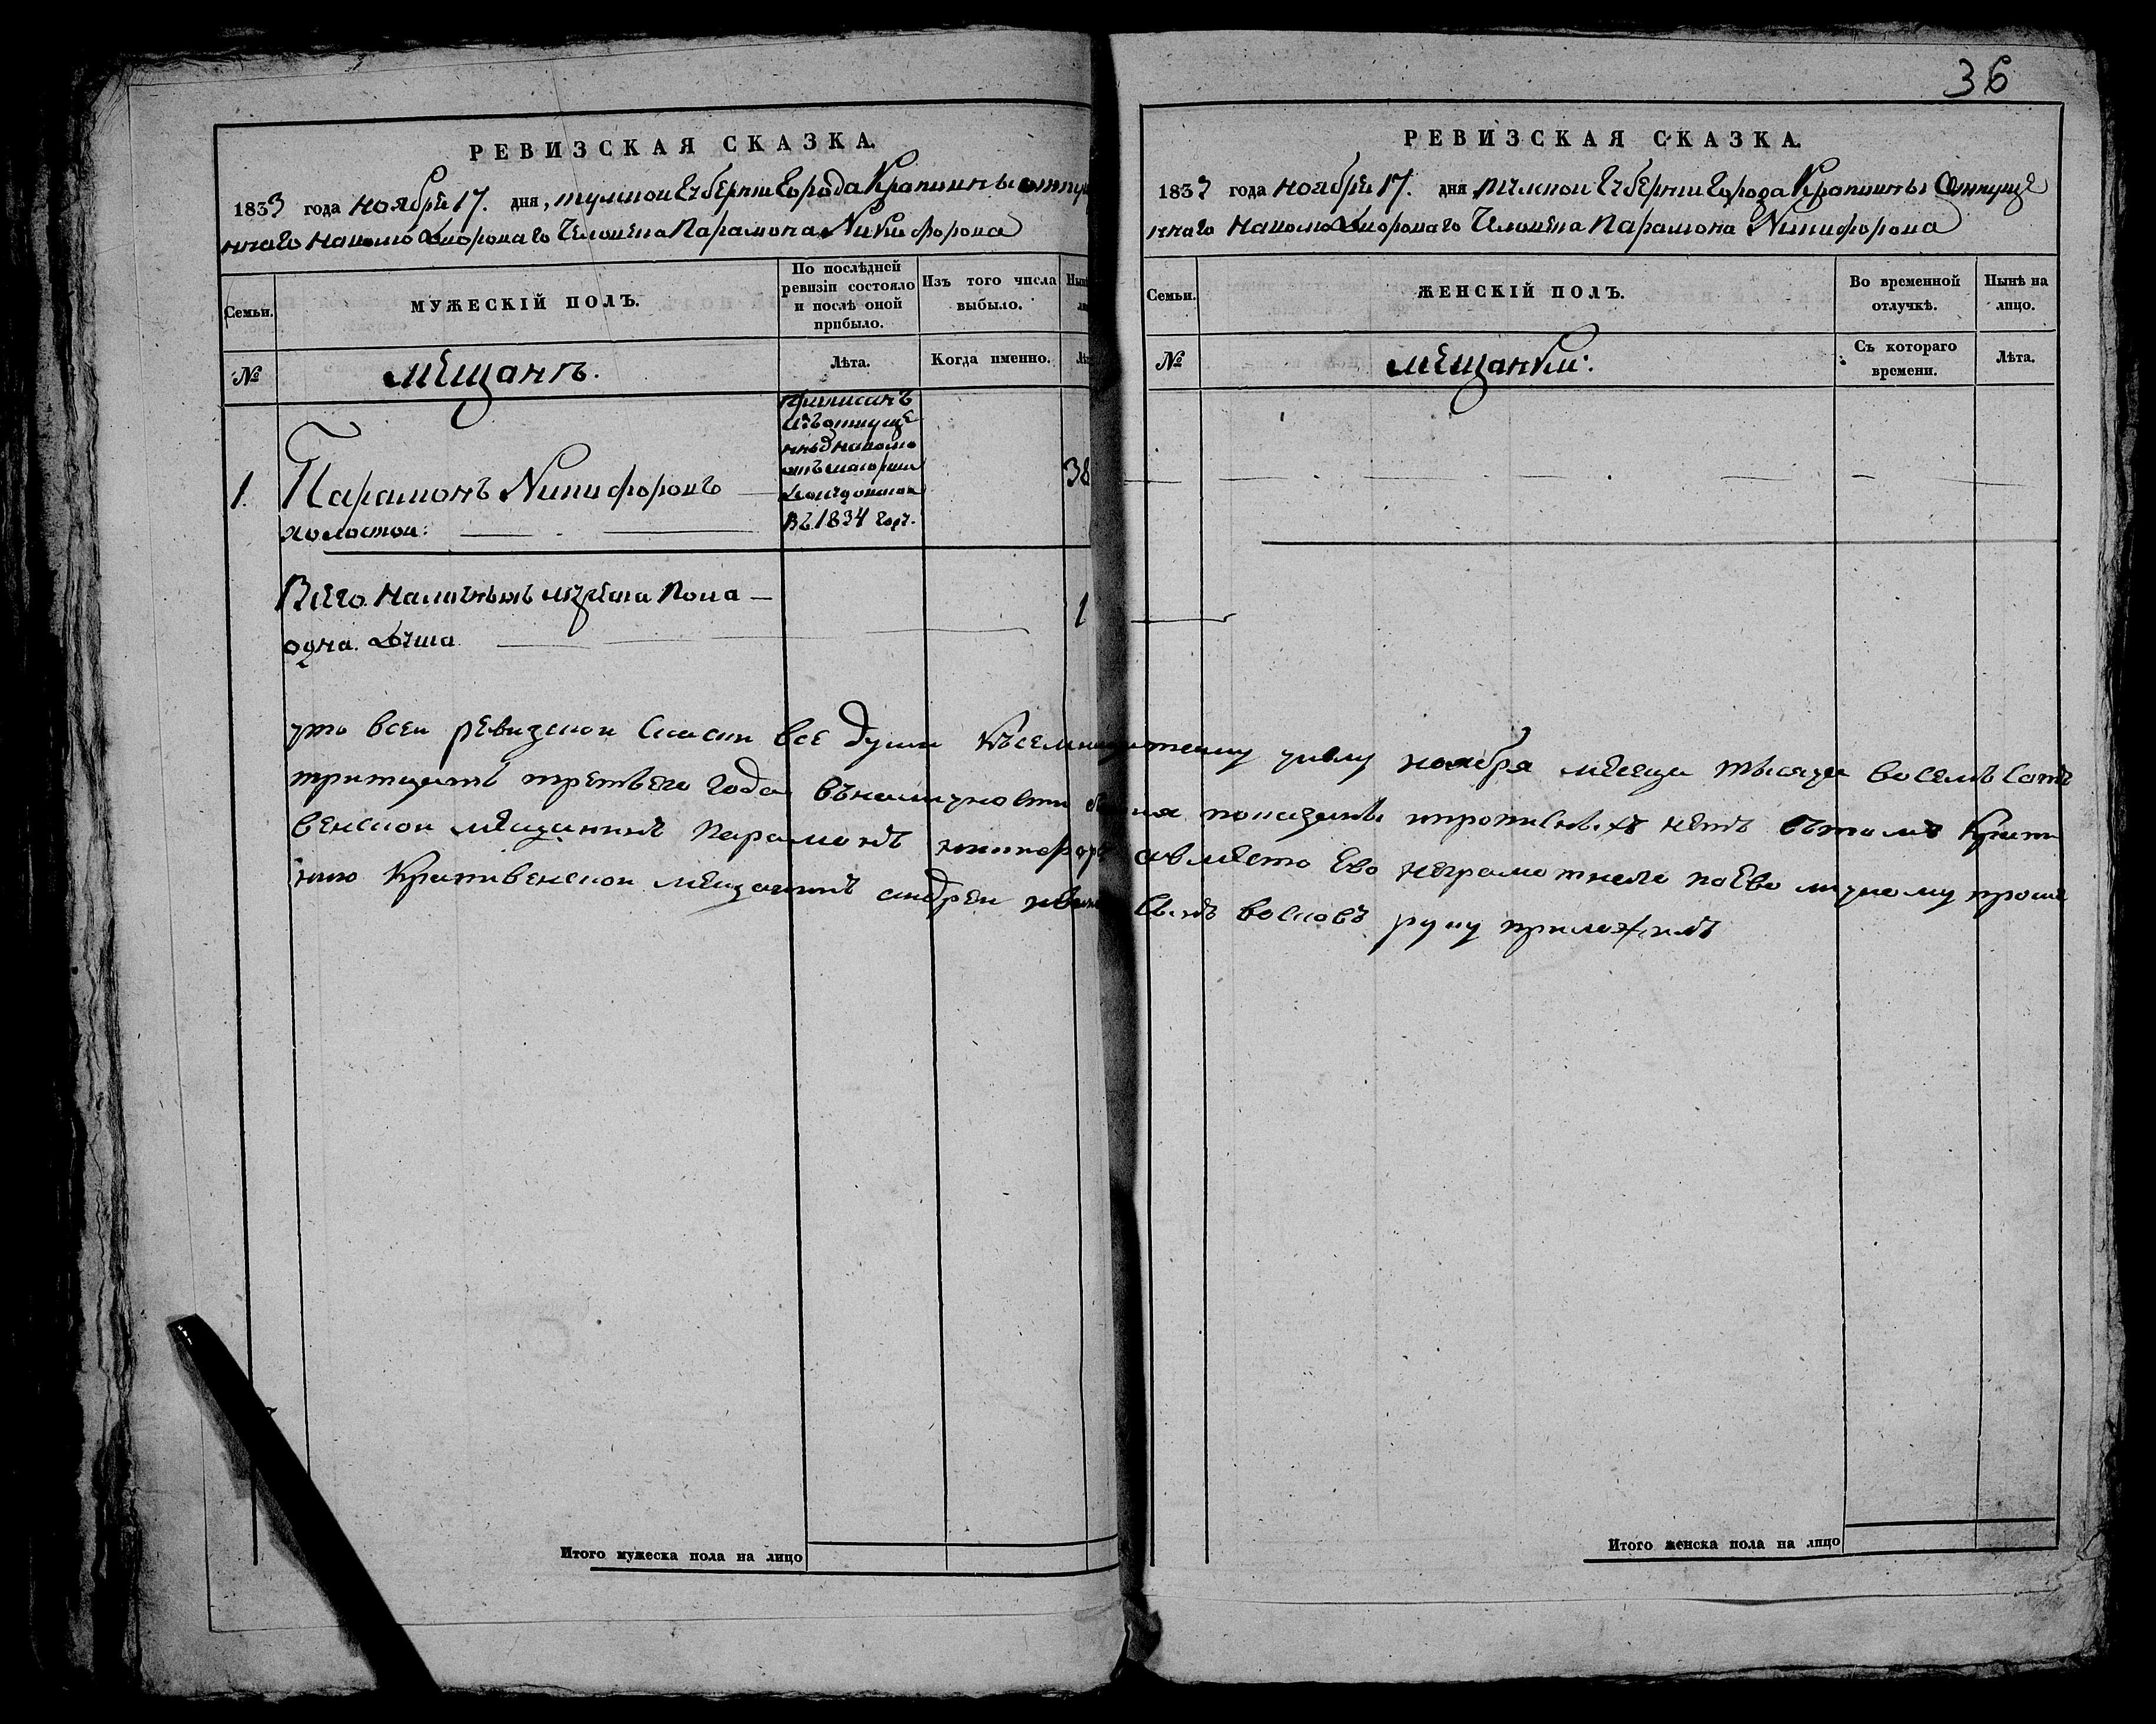 РЕВИЗСКАЯ СКАЗКА.
1833 года ноября 17. дня, тулской губернии города Крапивны отпущ
ннаго наволю дворового человека Парамона Никифорова
Семьи.
МУЖЕСКІЙ ПОЛЪ.
По послѣдней ревизіи состояло и послѣ оной прибыло.
Изъ того числа выбыло.
№
мещанъ.
Лѣта.
Когда именно.
1.
Парамонъ Никифоровъ
холостой:
приписанъ
изъ отпуще
нных наволю
отъ
в 1834 годъ.
38
Всего наличныхъ мужска пола
одна душа
1
что всей ревизской скаски все души къ семнадцатому числу ноября месеца тысяча восемь сотъ
тритцать третьего года въ наличности показаны прописныхъ нетъ въ томъ крапи
венской мещанинъ Парамонъ никифоровъ авместо ево неграмотнаго поево личному проше
нию Крапивенской мещанинъ андрей сынъ восковъ руку приложилъ
Итого мужеска пола на лицо
36
РЕВИЗСКАЯ СКАЗКА.
1833 года ноября 17. дня тулской губернии города Крапивны отпуще
ннаго наволю дворового человека Парамона Никифорова
Семьи.
ЖЕНСКІЙ ПОЛЪ.
Во временной отлучкѣ.
Нынѣ на лицо.
№
мещанки:
Съ котораго времени.
Лѣта.
Итого женска пола на лицо